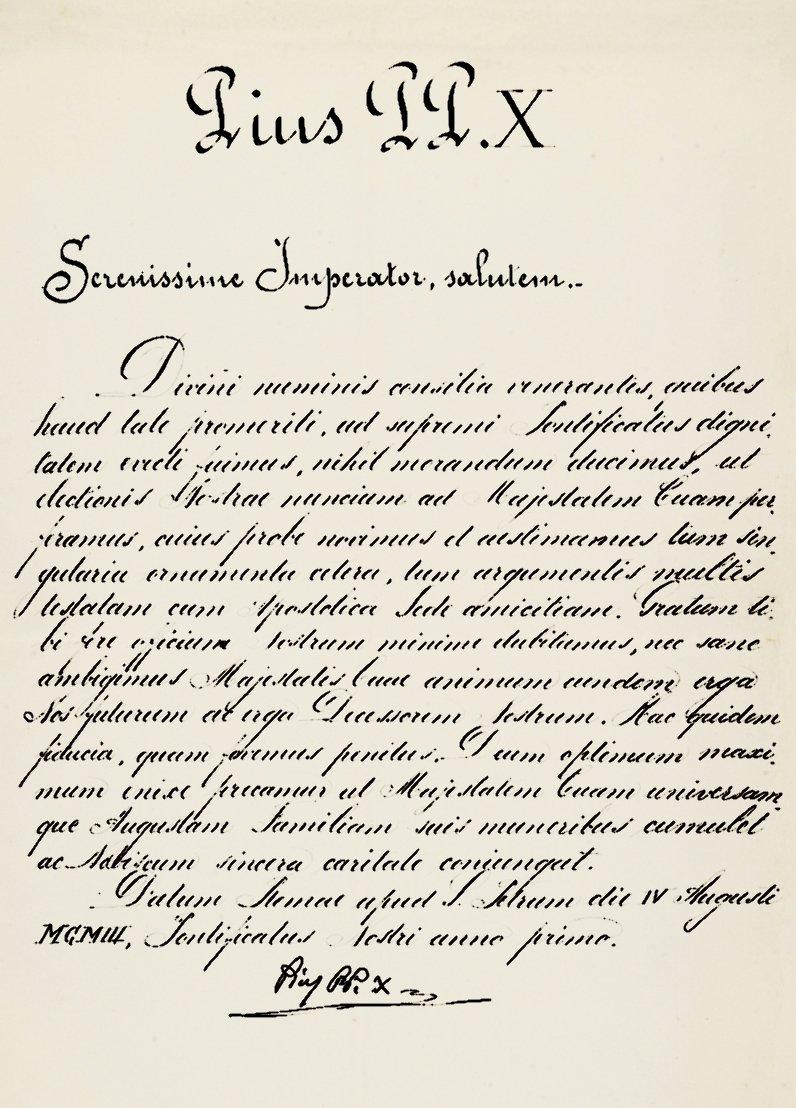 Pius PP. X
Serenissime Imperator, salutem.-
Divini numinis consilia venerantes, quibus
haud tale promeriti, ad supremi Pontificatus digni-
tatem evecti fuimus, nihil morandum ducimus, ut
electionis Nostrae nuncium ad Majestatem Tuam per-
feramus, cuius probe novimus et aestimamus tum sin-
gularia ornamenta cetera, tum argumentis multis
testatam cum Apostolica Sede amicitiam. Gratum ti-
bi fore officium Nostrum minime dubitamus, nec sane
ambigimus Majestatis Tuae animum eundem erga
Nos futurum ac erga Decessorem Nostrum. Hac quidem
fiducia, quam fovemus penitus. Deum optimum maxi-
mum enixe precamur ut Majestatem Tuam universam-
que Augustam Familiam suis muneribus cumulet
ac Nobiscum sincera caritate conjungat.
Datum Romae apud S. Petrum die IV Augusti
MCMIII, Pontificatus Nostri anno primo.
Pius PP. X